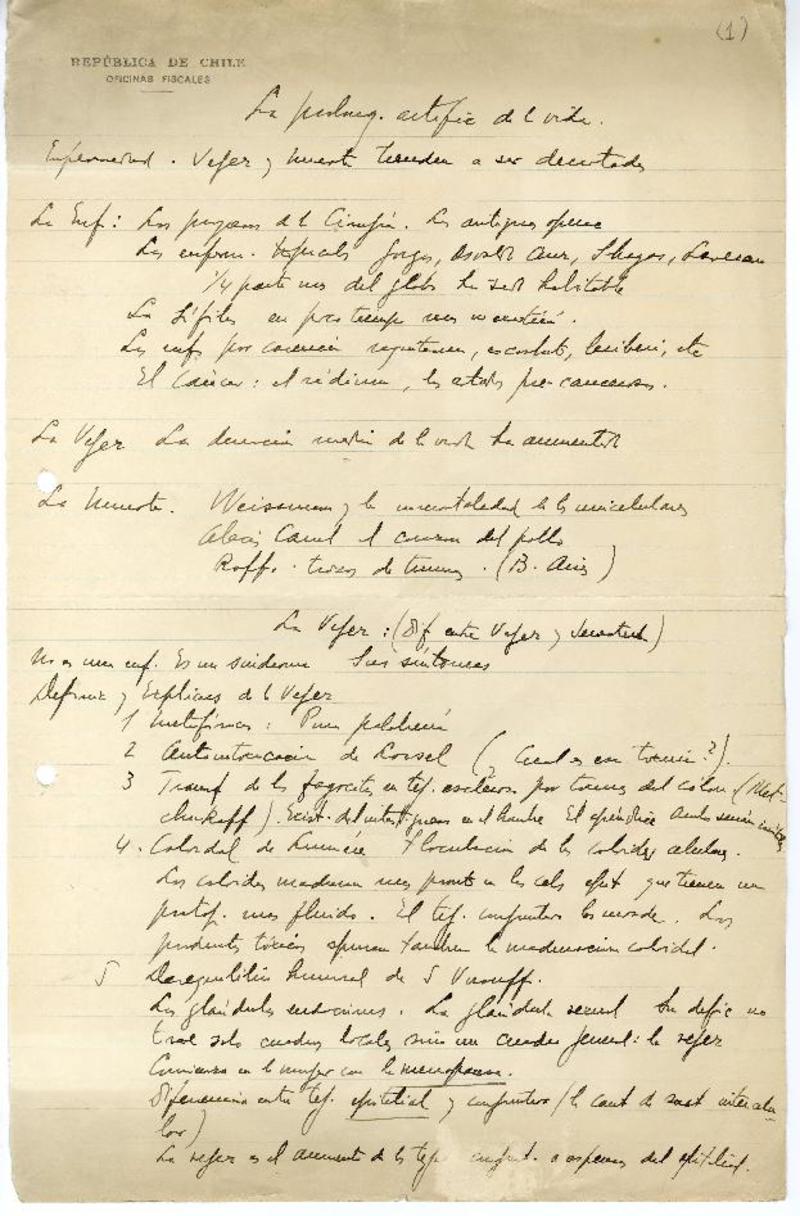 (1)
REPÚBLICA DE CHILE
OFICINAS FISCALES
La prolong. artific de l vida.
Enfermedad. Vejez y Muerte tienden a ser derrotadas
La Enf: Los progresos de la Cirugía. Los antiguos
Las enferm. tropicals Gorgas, Osvaldo Cruz, Shagas, Laveran
1/4 parte mas del globo ha sido habitable
La Sífiles en poco tiempo mas
Las enfs por carencia raquitismo, escorbuto, beriberi, etc
El Cáncer: el rádium, los estados pre-cancerosos.
La Vejez La duración media de la vida ha aumentado
La Muerte. Weissmann y la inmortalidad de los unicelulares
Alexis Carrel el corazon del pollo
Roffo. trozos de tumores. (B. Aires)
La Vejez: (Dif entre Vejez y Senectud)
No es una enf. Es un sindrome Sus síntomas
y Explicac de la Vejez
1 Metafísicas: Pura palabrería
2 Autointoxicación de (¿Cual es esa toxina?).
3 Transf de los fagocitos en tej. escleroso por toxinas del colon (Met-
chnikoff). Exist. del intest grueso en el hombre El apéndice Ambos serían inútiles
4. Coloidal de Lumière Floculacion de los coloides celulares.
Los coloides maduran mas pronto en las cels epit que tienen un
protop. mas fluido. El tej. conjuntivo los invade. Los
productos tóxicos apuran tambien la maduracion coloidal.
5 Desequilibrio humoral de S Voronoff.
Las glándulas endocrinas. La glándula sexual Su defic no
trae solo cuadros locales sino un cuadro general: la vejez
Comienza en la mujer con la menopausia.
Diferencia entre tej. epitelial y conjuntivo (la cant de sust intercelu-
lar)
La vejez es el aumento de los tejs conjunt. a espensas del epitelial.